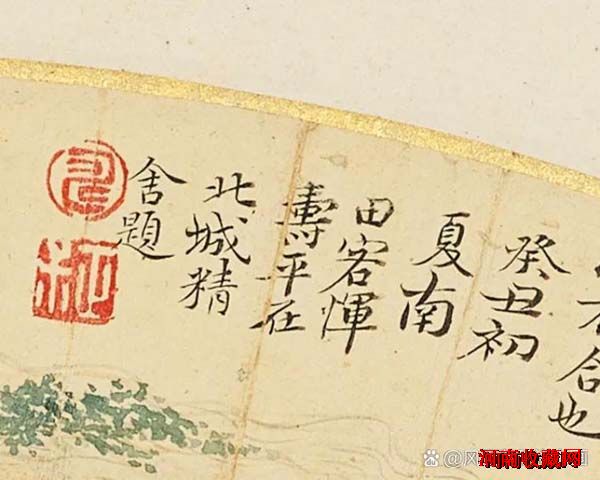 合也
癸丑初
夏南
田客惲
壽平在
北城精
舍題
河南收藏网